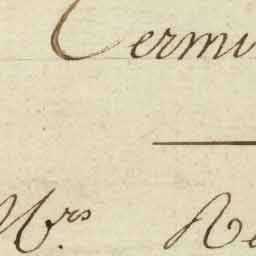 Termi
Mrs. Re